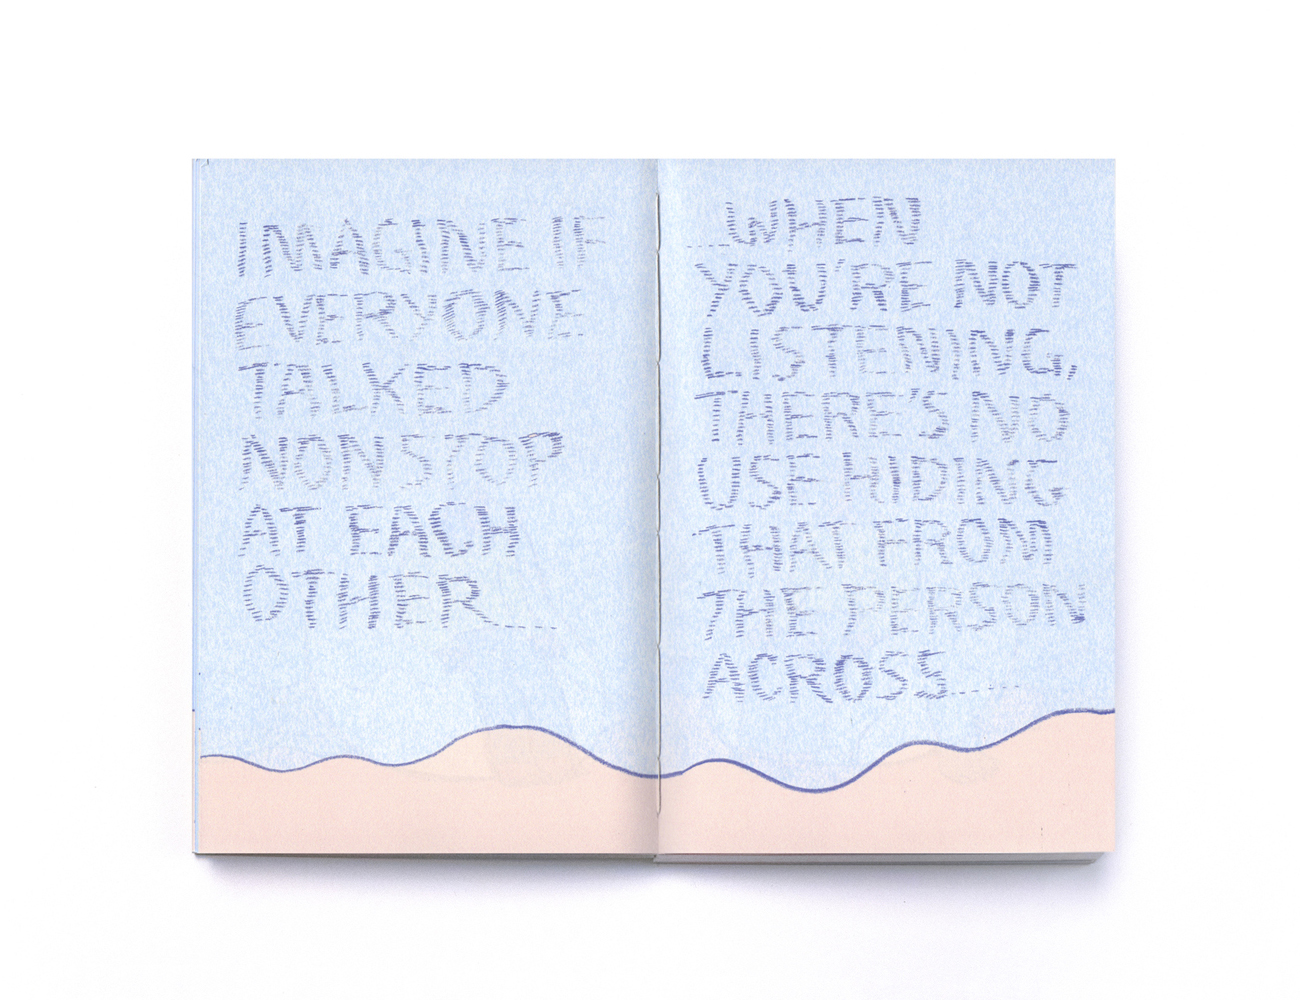 IMAGINE IF
EVERYONE
TALKED
NONSTOP
AT EACH
OTHER.....
....WHEN
YOU'RE NOT
LISTENING,
THERE'S NO
USE HIDING
THAT FROM
THE PERSON
ACROSS......